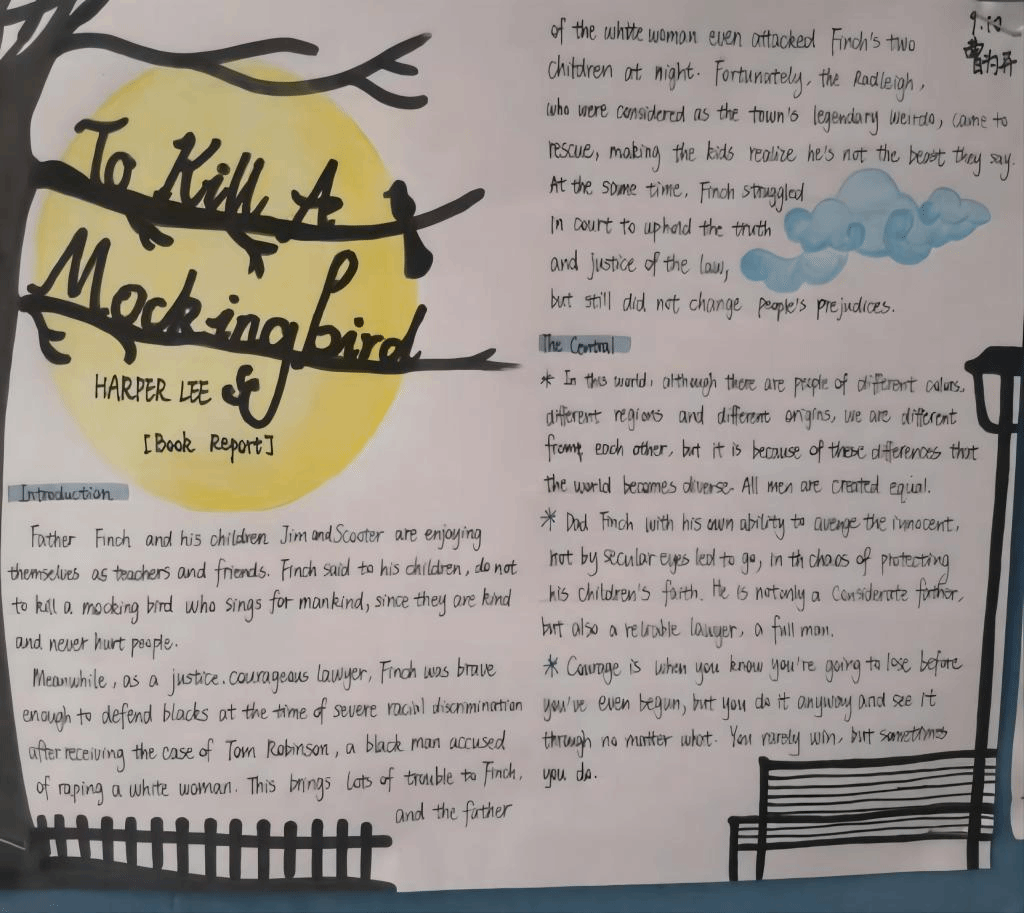 To Kill A
Mockingbird
HARPER LEE
[Book Report]
Introduction
Father Finch and his children Jim and Scooter are enjoying
themselves as teachers and friends. Finch said to his children, do not
to kill a mocking bird who sings for mankind, since they are kind
and never hurt people.
Meanwhile, as a justice. courageous lawyer, Finch was brave
enough to defend blacks at the time of severe racial discrimination
after receiving the case of Tom Robinson, a black man accused
of raping a white woman. This brings lots of trouble to Finch,
and the father
of the white woman even attacked Finch's two
children at night. Fortunately, the Radleigh,
who were considered as the town's legendary weirdo, came to
rescue, making the kids realize he's not the beast they say.
At the same time, Finch struggled
In court to uphold the truth
and justice of the law,
but still did not change people's prejudices.
The Central
* In this world, although there are people of different colors.
different regions and different origins, we are different
from each other, but it is because of these differences that
the world becomes diverse. All men are created equal.
* Dad Finch with his own ability to avenge the innocent,
not by secular eyes led to go, in th chaos of protecting
his children's faith. He is not only a considerate father,
but also a reliable lawyer, a full man.
* Courage is when you know you're going to lose before
you've even begun, but you do it anyway and see it
through no matter what. You rarely win, but sometimes
you do.
9.10